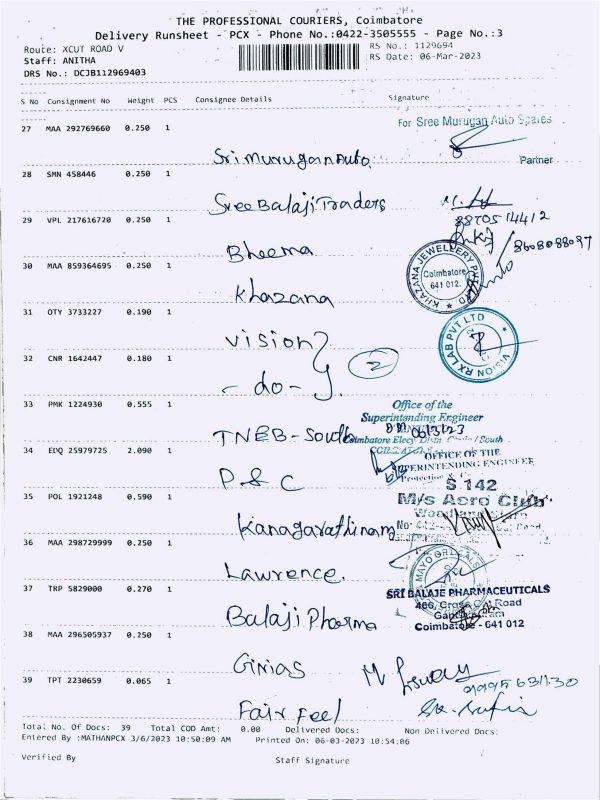 THE PROFESSIONAL COURIERS, Coimbatore
Delivery Runsheet - PCX - Phone No.:0422-3505555 - Page No.:3
Route: XCUT ROAD V
RS No.: 1129694
Staff: ANITHA
RS Date: 06-Mar-2023
DRS No.: DCJB112969403
S No Consignment No Weight PCS Consignee Details Signature
27 MAA 292769660 0.250 1
For Sree Murugan Auto Spares
Sri Murugan Auto
Partner
28 SMN 458446 0.250 1
Sree Balaji Traders
29 VPL 217616720 0.250 1
8870514412
Bheema
8608088097
30 MAA 859364695 0.250 1
KHAZANA JEWELLERY PVT LTD
Coimbatore
641 012.
Khazana
31 OTY 3733227 0.190 1
VISION RX LAB PVT LTD
vision
32 CNR 1642447 0.180 1
2
- do -
33 PMK 1224930 0.555 1
Office of the
Superintending Engineer
06/3/23
TNEB - South
Coimbatore Elecy. Distn. Circle / South
34 EDQ 25979725 2.090 1
OFFICE OF THE
SUPERINTENDING ENGINEER
P & C
S.142
35 POL 1921248 0.590 1
M/s Aero Club
Woodland Store
Kanagarathinam
36 MAA 298729999 0.250 1
Lawrence.
37 TRP 5829000 0.270 1
SRI BALAJE PHARMACEUTICALS
466, Cross Cut Road
Gandhipuram
Coimbatore - 641 012
Balaji Pharma
38 MAA 296505937 0.250 1
Ginias
39 TPT 2230659 0.065 1
Fair Feel
Total No. Of Docs: 39 Total COD Amt: 0.00 Delivered Docs: Non Delivered Docs:
Entered By :MATHANPCX 3/6/2023 10:50:09 AM Printed On: 06-03-2023 10:54:06
Verified By Staff Signature